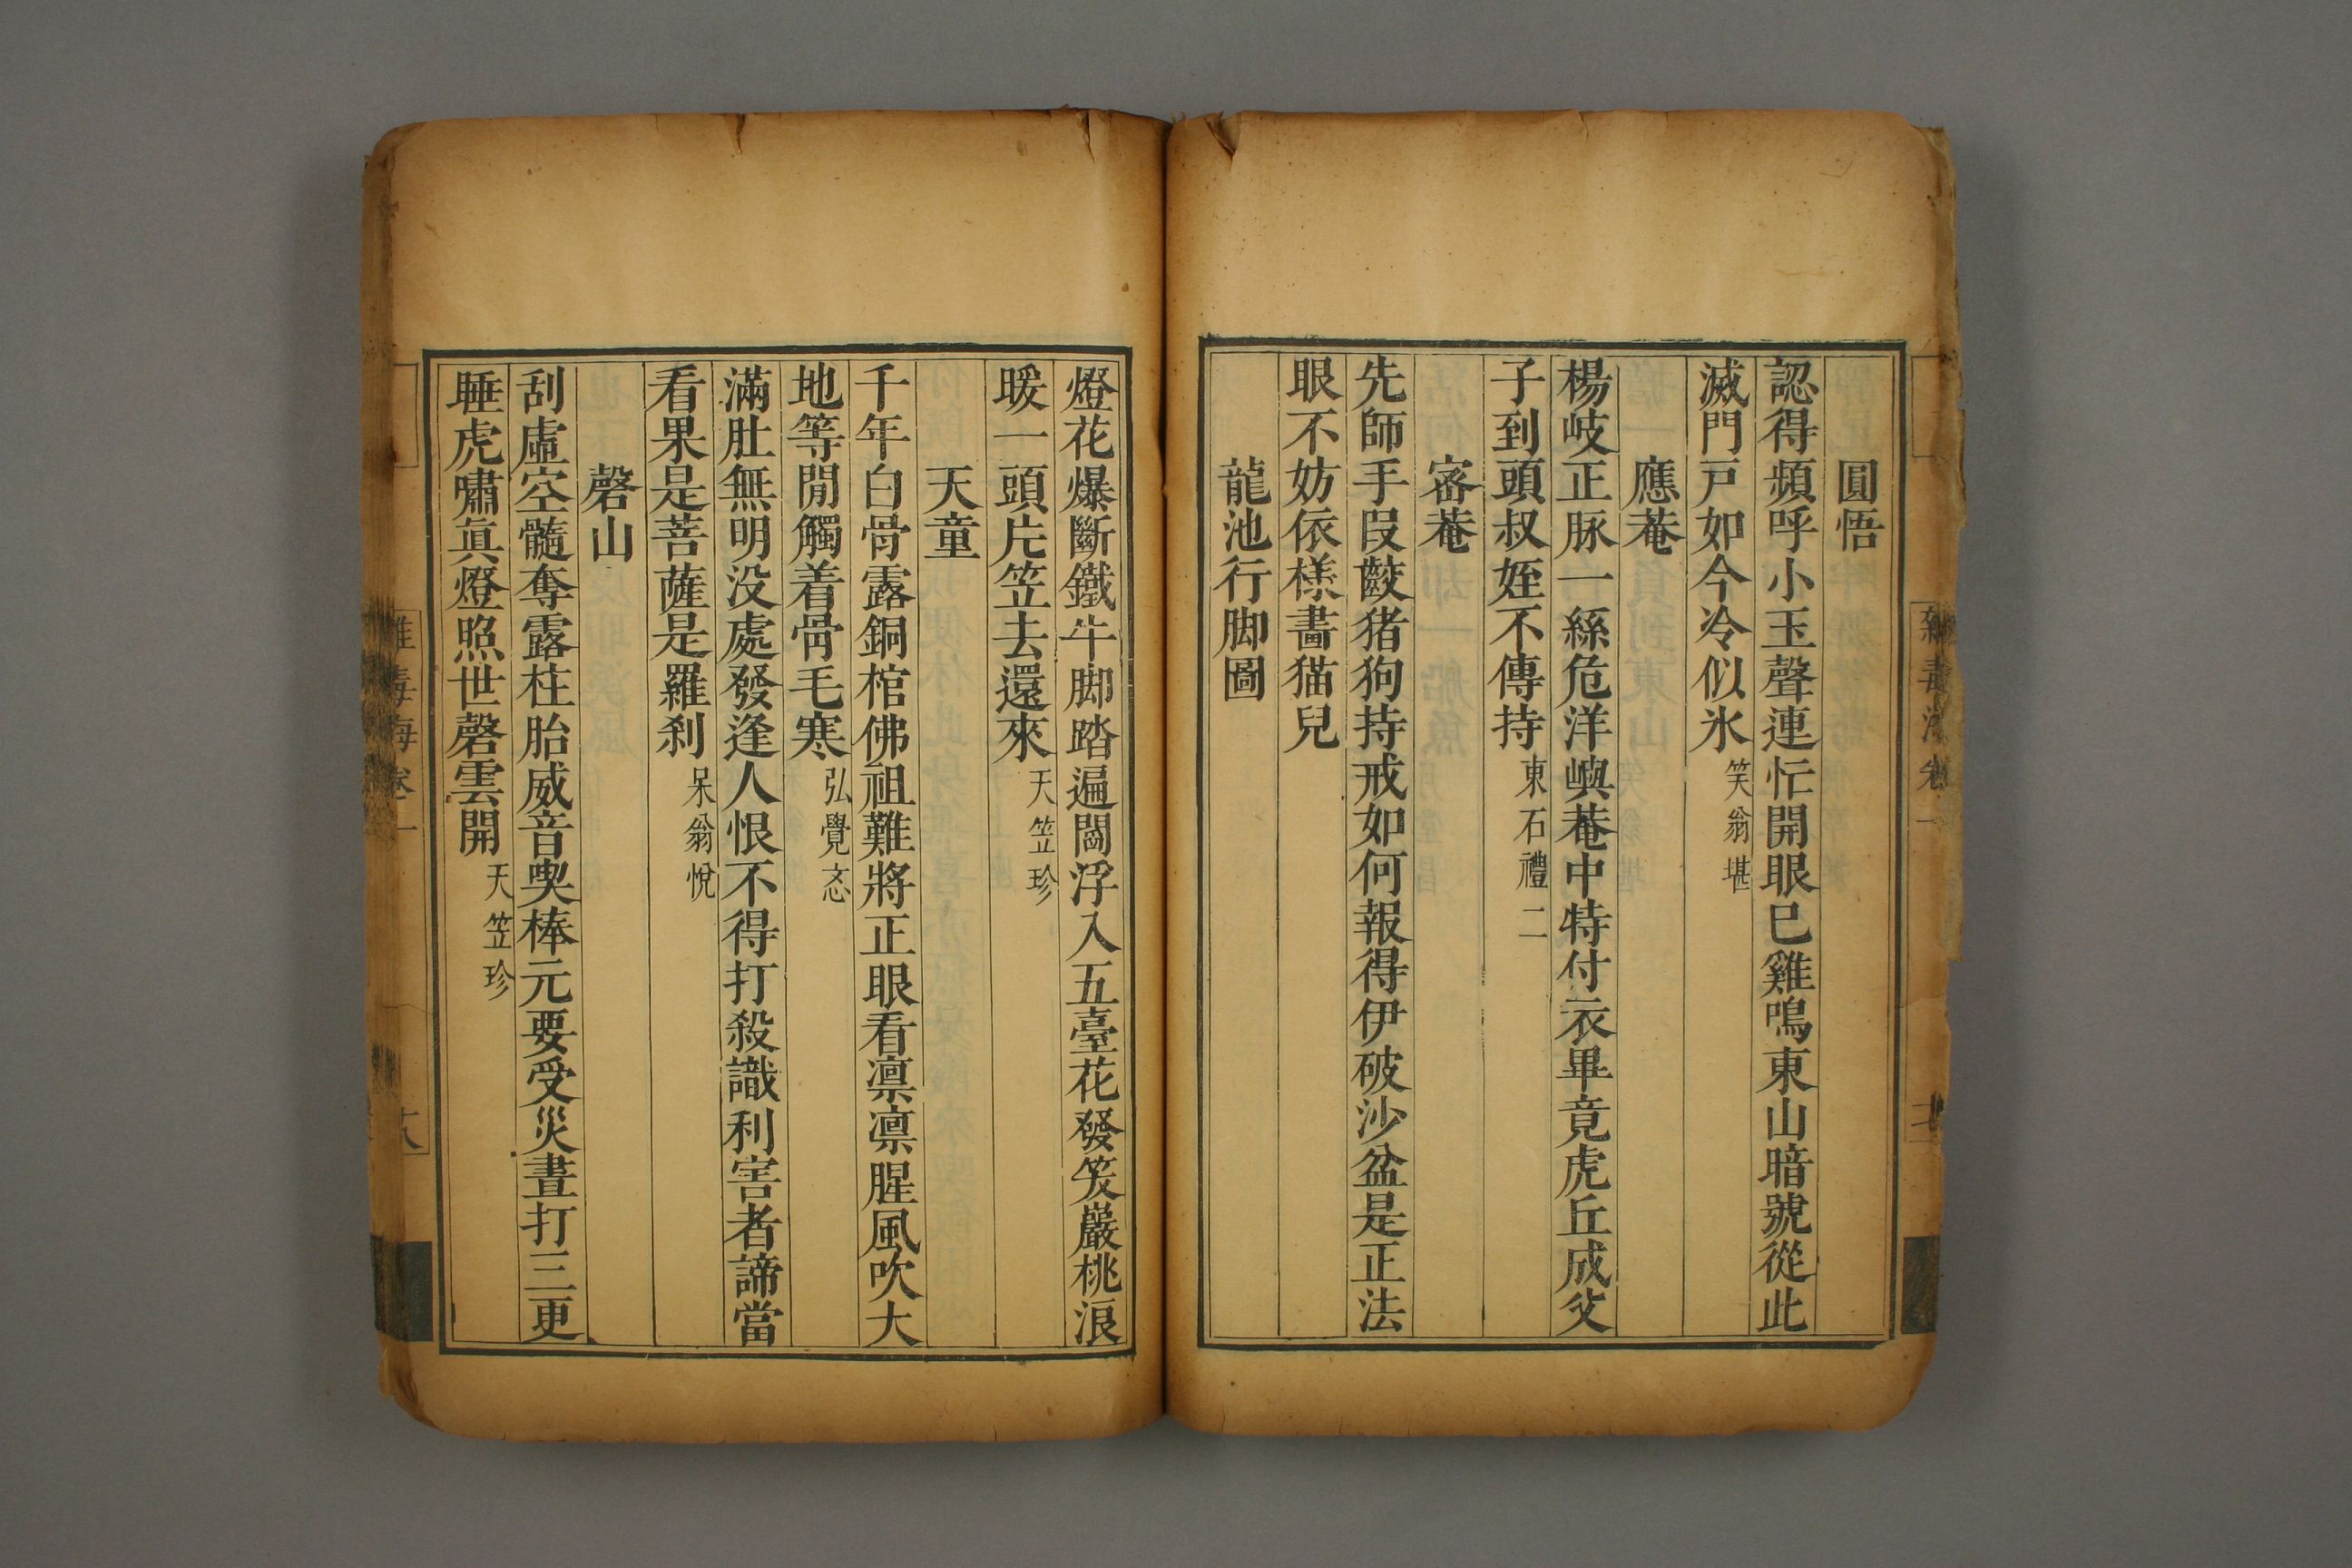 圓悟
認得頻呼小玉聲連忙開眼巳雞鳴東山暗號從此
滅門戸如今冷似氷笑翁堪
應菴
楊岐正脉一絲危洋嶼菴中特付衣畢竟虎丘成父
子到頭叔姪不傳持東石禮二
密菴
先師手段齩猪狗持戒如何報得伊破沙盆是正法
眼不妨依樣畵猫兒
龍池行脚圖
燈花爆斷鐵牛脚踏遍閻浮入五臺花發笑巖桃浪
暖一頭片笠去還來天笠珍
天童
千年白骨露銅棺佛祖難將正眼看凛凛腥風吹大
地等閒觸着骨毛寒弘覺忞
滿肚無明没處發逢人恨不得打殺識利害者諦當
看果是菩薩是羅刹呆翁悅
磬山
刮虛空髓奪露柱胎威音喫棒元要受災晝打三更
睡虎嘯眞燈照世磬雲開天笠珍
雜毒海卷一
十八